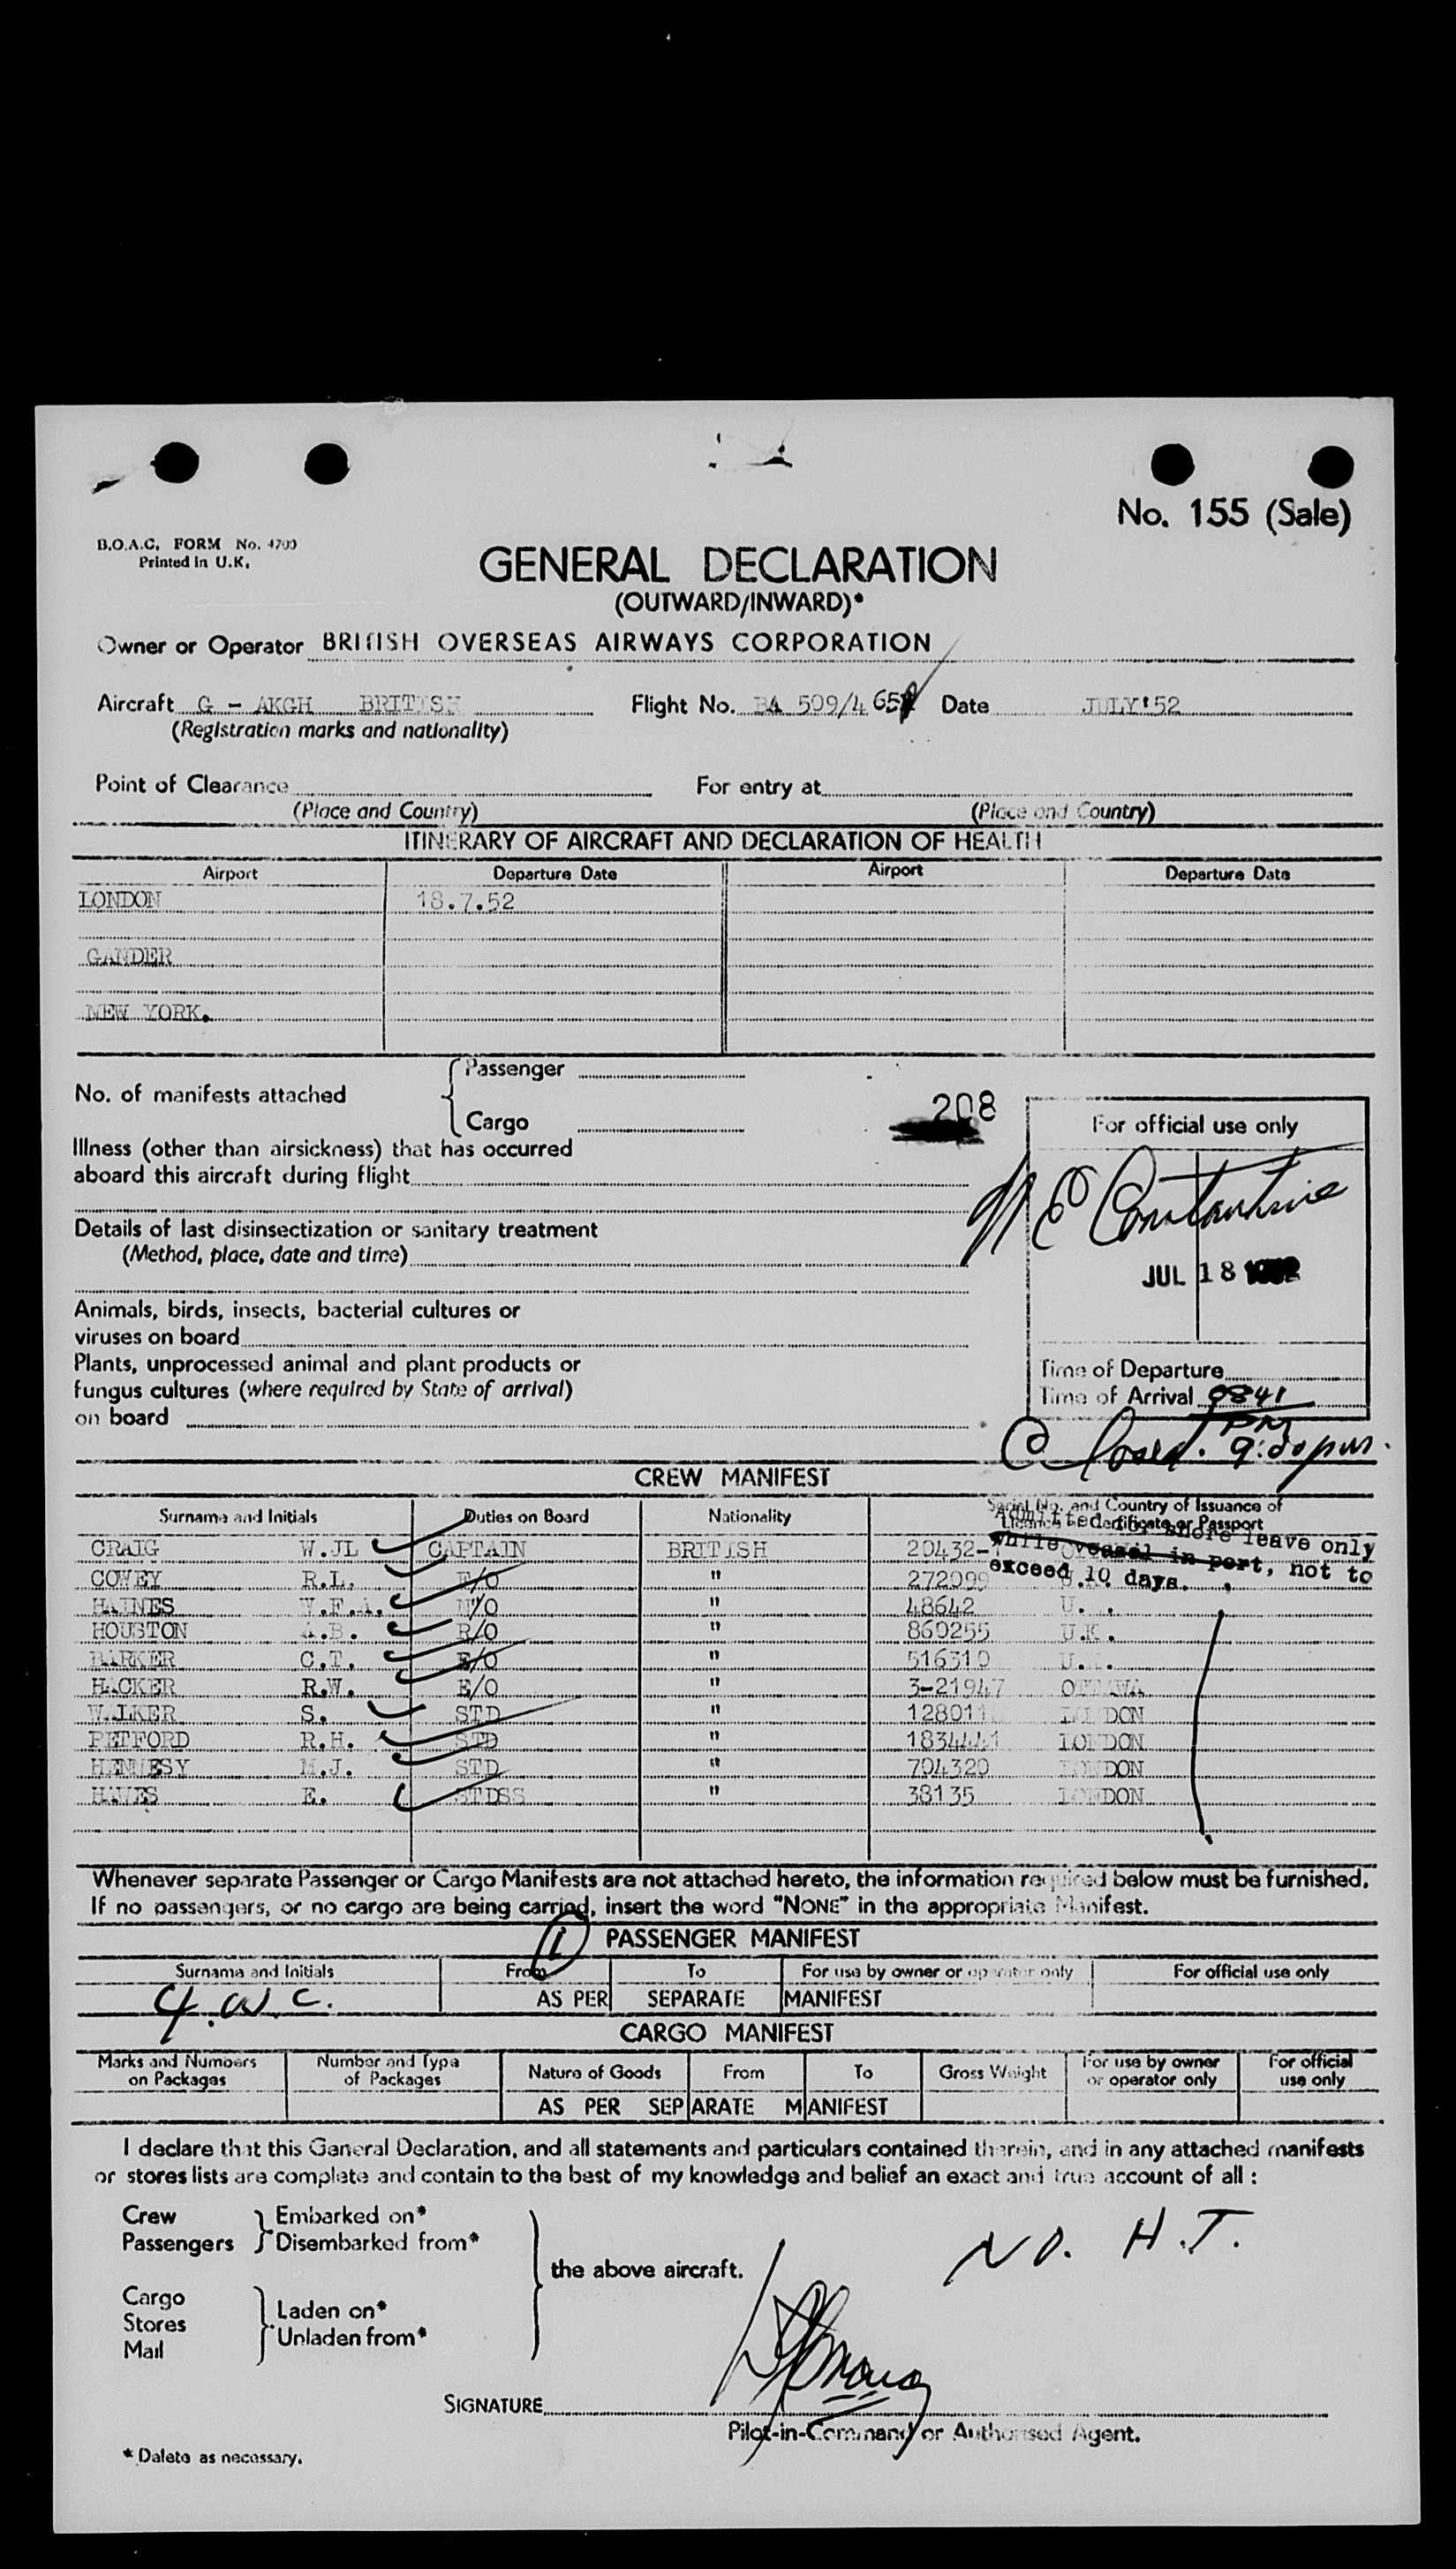 No. 155 (Sale)
B.O.A.C. FORM No. 4700
Printed in U.K.
GENERAL DECLARATION
(OUTWARD/INWARD)*
Owner or Operator BRITISH OVERSEAS AIRWAYS CORPORATION
Aircraft G - AKGH BRITISH Flight No. BA 509/4 Date JULY'52
(Registration marks and nationality)
Point of Clearance For entry at
(Place and Country) (Place and Country)
ITINERARY OF AIRCRAFT AND DECLARATION OF HEALTH
Airport Departure Date Airport Departure Date
LONDON 18.7.52
GANDER
NEW YORK.
Passenger
No. of manifests attached
Cargo
208
For official use only
Illness (other than airsickness) that has occurred
aboard this aircraft during flight
N E Constantine
Details of last disinsectization or sanitary treatment
(Method, place, date and time)
JUL 18
Animals, birds, insects, bacterial cultures or
viruses on board
Plants, unprocessed animal and plant products or
fungus cultures (where required by State of arrival)
on board
Time of Departure
Time of Arrival 0841
PM
Closed. 9:00 pm.
CREW MANIFEST
Surname and Initials Duties on Board Nationality Serial No. and Country of Issuance of
Licence Certificate or Passport
Admitted for shore leave only
while vessel in port, not to
exceed 10 days.
CRAIG W.J. CAPTAIN BRITISH 20432-
COVEY R.L. F/O " 272099 U.K.
HAINES W.F.A. N/O " 48642 U.
HOUSTON A.B. R/O " 860255 U.K.
BARKER C.T. E/O " 516310 U.
HACKER R.W. E/O " 3-21947 OTTAWA
WALKER S. STD " 128011 LONDON
PETFORD R.H. STD " 1834441 LONDON
HENNESY M.J. STD " 704320 LONDON
HAWES E. STDSS " 38135 LONDON
Whenever separate Passenger or Cargo Manifests are not attached hereto, the information required below must be furnished.
If no passengers, or no cargo are being carried, insert the word "NONE" in the appropriate Manifest.
1 PASSENGER MANIFEST
Surname and Initials From To For use by owner or operator only For official use only
4.W.C. AS PER SEPARATE MANIFEST
CARGO MANIFEST
Marks and Numbers on Packages Number and Type of Packages Nature of Goods From To Gross Weight For use by owner or operator only For official use only
AS PER SEPARATE MANIFEST
I declare that this General Declaration, and all statements and particulars contained therein, and in any attached manifests
or stores lists are complete and contain to the best of my knowledge and belief an exact and true account of all :
Crew Embarked on*
Passengers Disembarked from*
the above aircraft.
NO. H.T.
Cargo
Stores Laden on*
Mail Unladen from*
SIGNATURE
Pilot-in-Command or Authorised Agent.
* Delete as necessary.